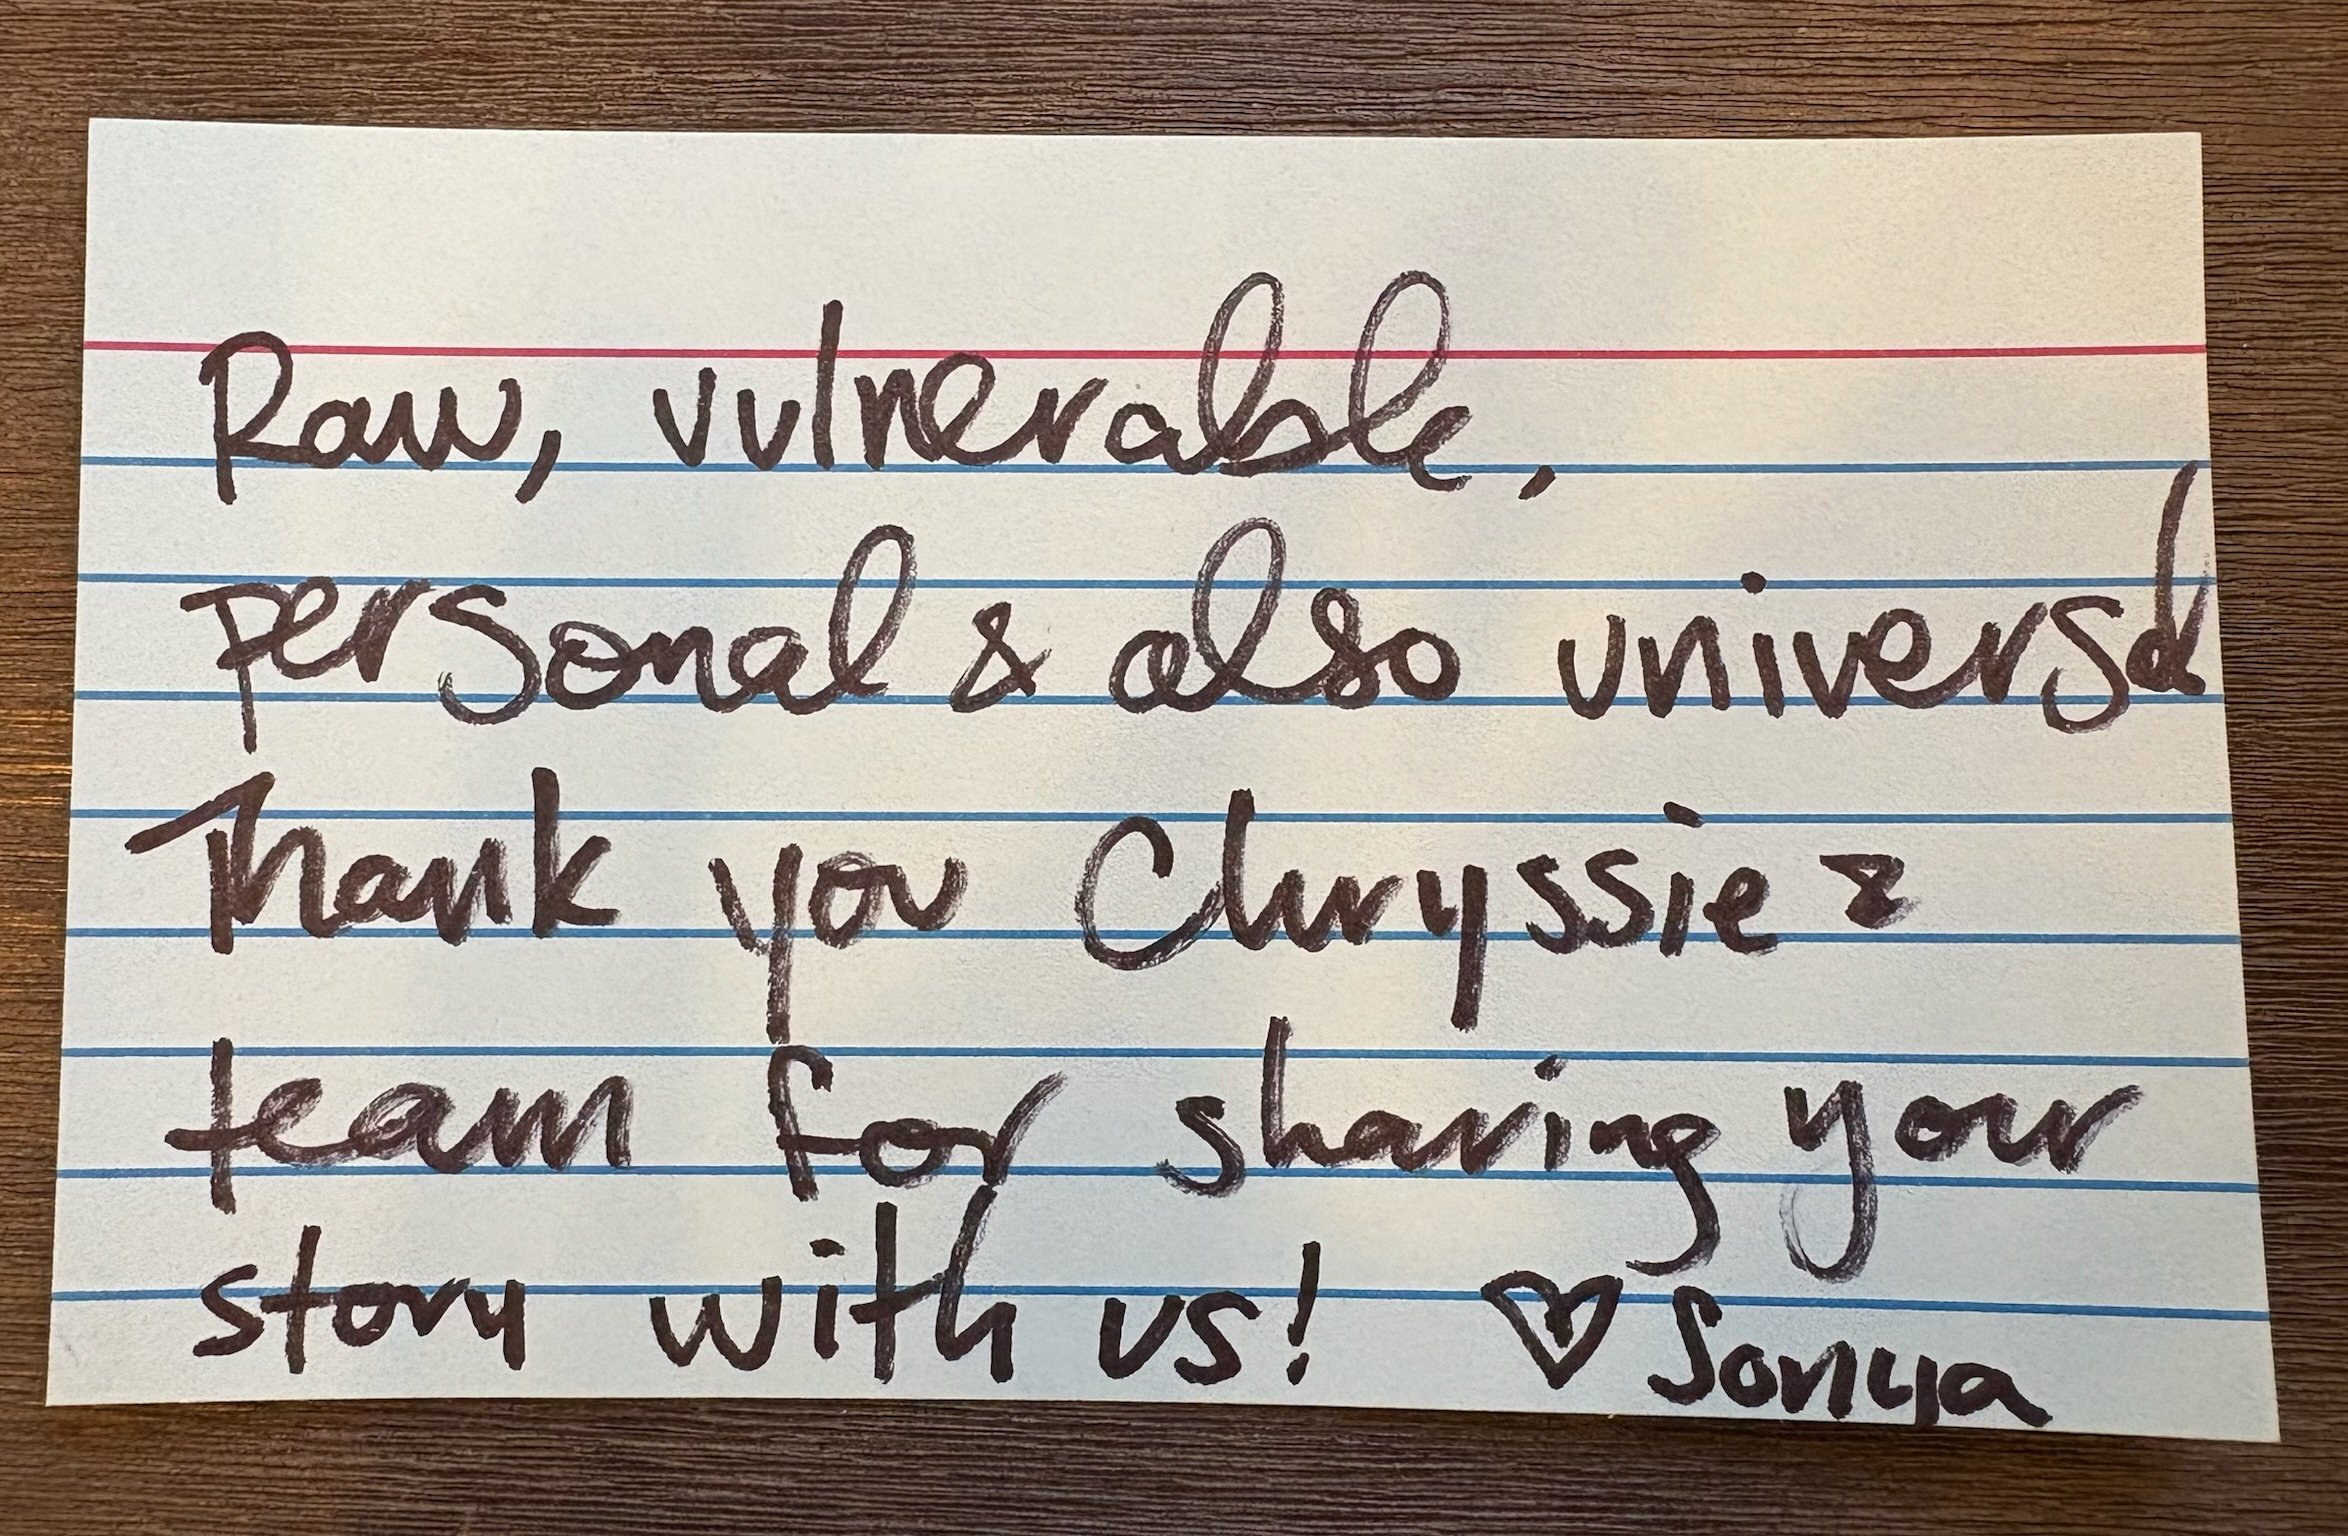 Raw, vulnerable,
personal & also universal
Thank you Chryssie &
team for sharing your
story with us! ♡ Sonya